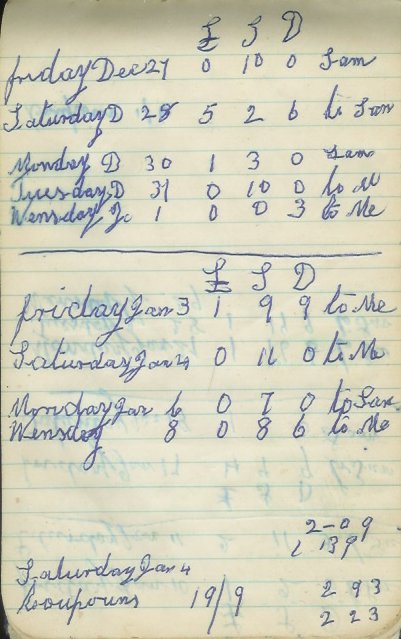 £ S D
friday Dec 27 0 10 0 Sam
Saturday D 28 5 2 6 to Sam
Monday D 30 1 3 0 Sam
Tuesday D 31 0 10 0 to M
Wensday Ja 1 0 0 3 to Me
£ S D
friday Jan 3 1 9 9 to Me
Saturday Jan 4 0 11 0 to Me
Monday Jan 6 0 7 0 to Sam
Wensday 8 0 8 6 to Me
2-09.
139
Saturday Jan 4
Coupouns 19/9 2 93
2 2 3